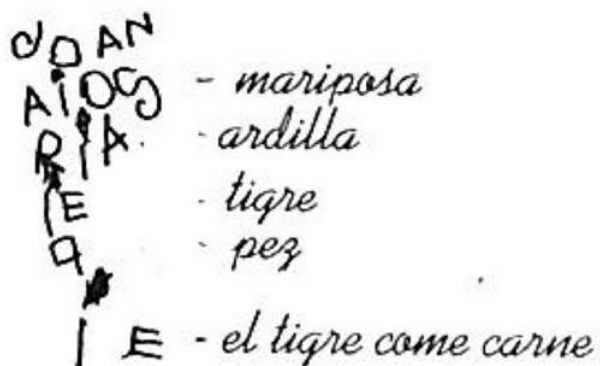 JOAN
AiOS - mariposa
RIA - ardilla
IE - tigre
- pez
I E - el tigre come carne